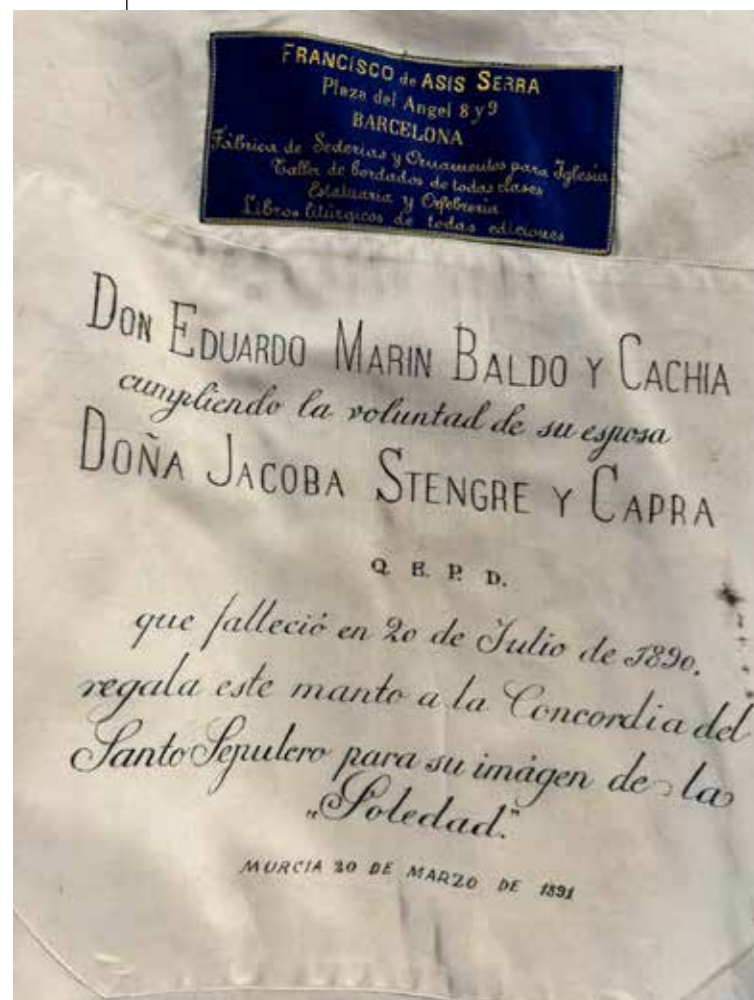 FRANCISCO de ASIS SERRA
Plaza del Angel 8 y 9
BARCELONA
Fábrica de Sederias y Ornamentos para Iglesia
Taller de bordados de todas clases
Estatuaria y Orfebreria
Libros litúrgicos de todas ediciones
DON EDUARDO MARIN BALDO Y CACHIA
cumpliendo la voluntad de su esposa
DOÑA JACOBA STENGRE Y CAPRA
Q. E. P. D.
que falleció en 20 de Julio de 1890,
regala este manto a la Concordia del
Santo Sepulcro para su imágen de la
„Soledad."
MURCIA 20 DE MARZO DE 1891